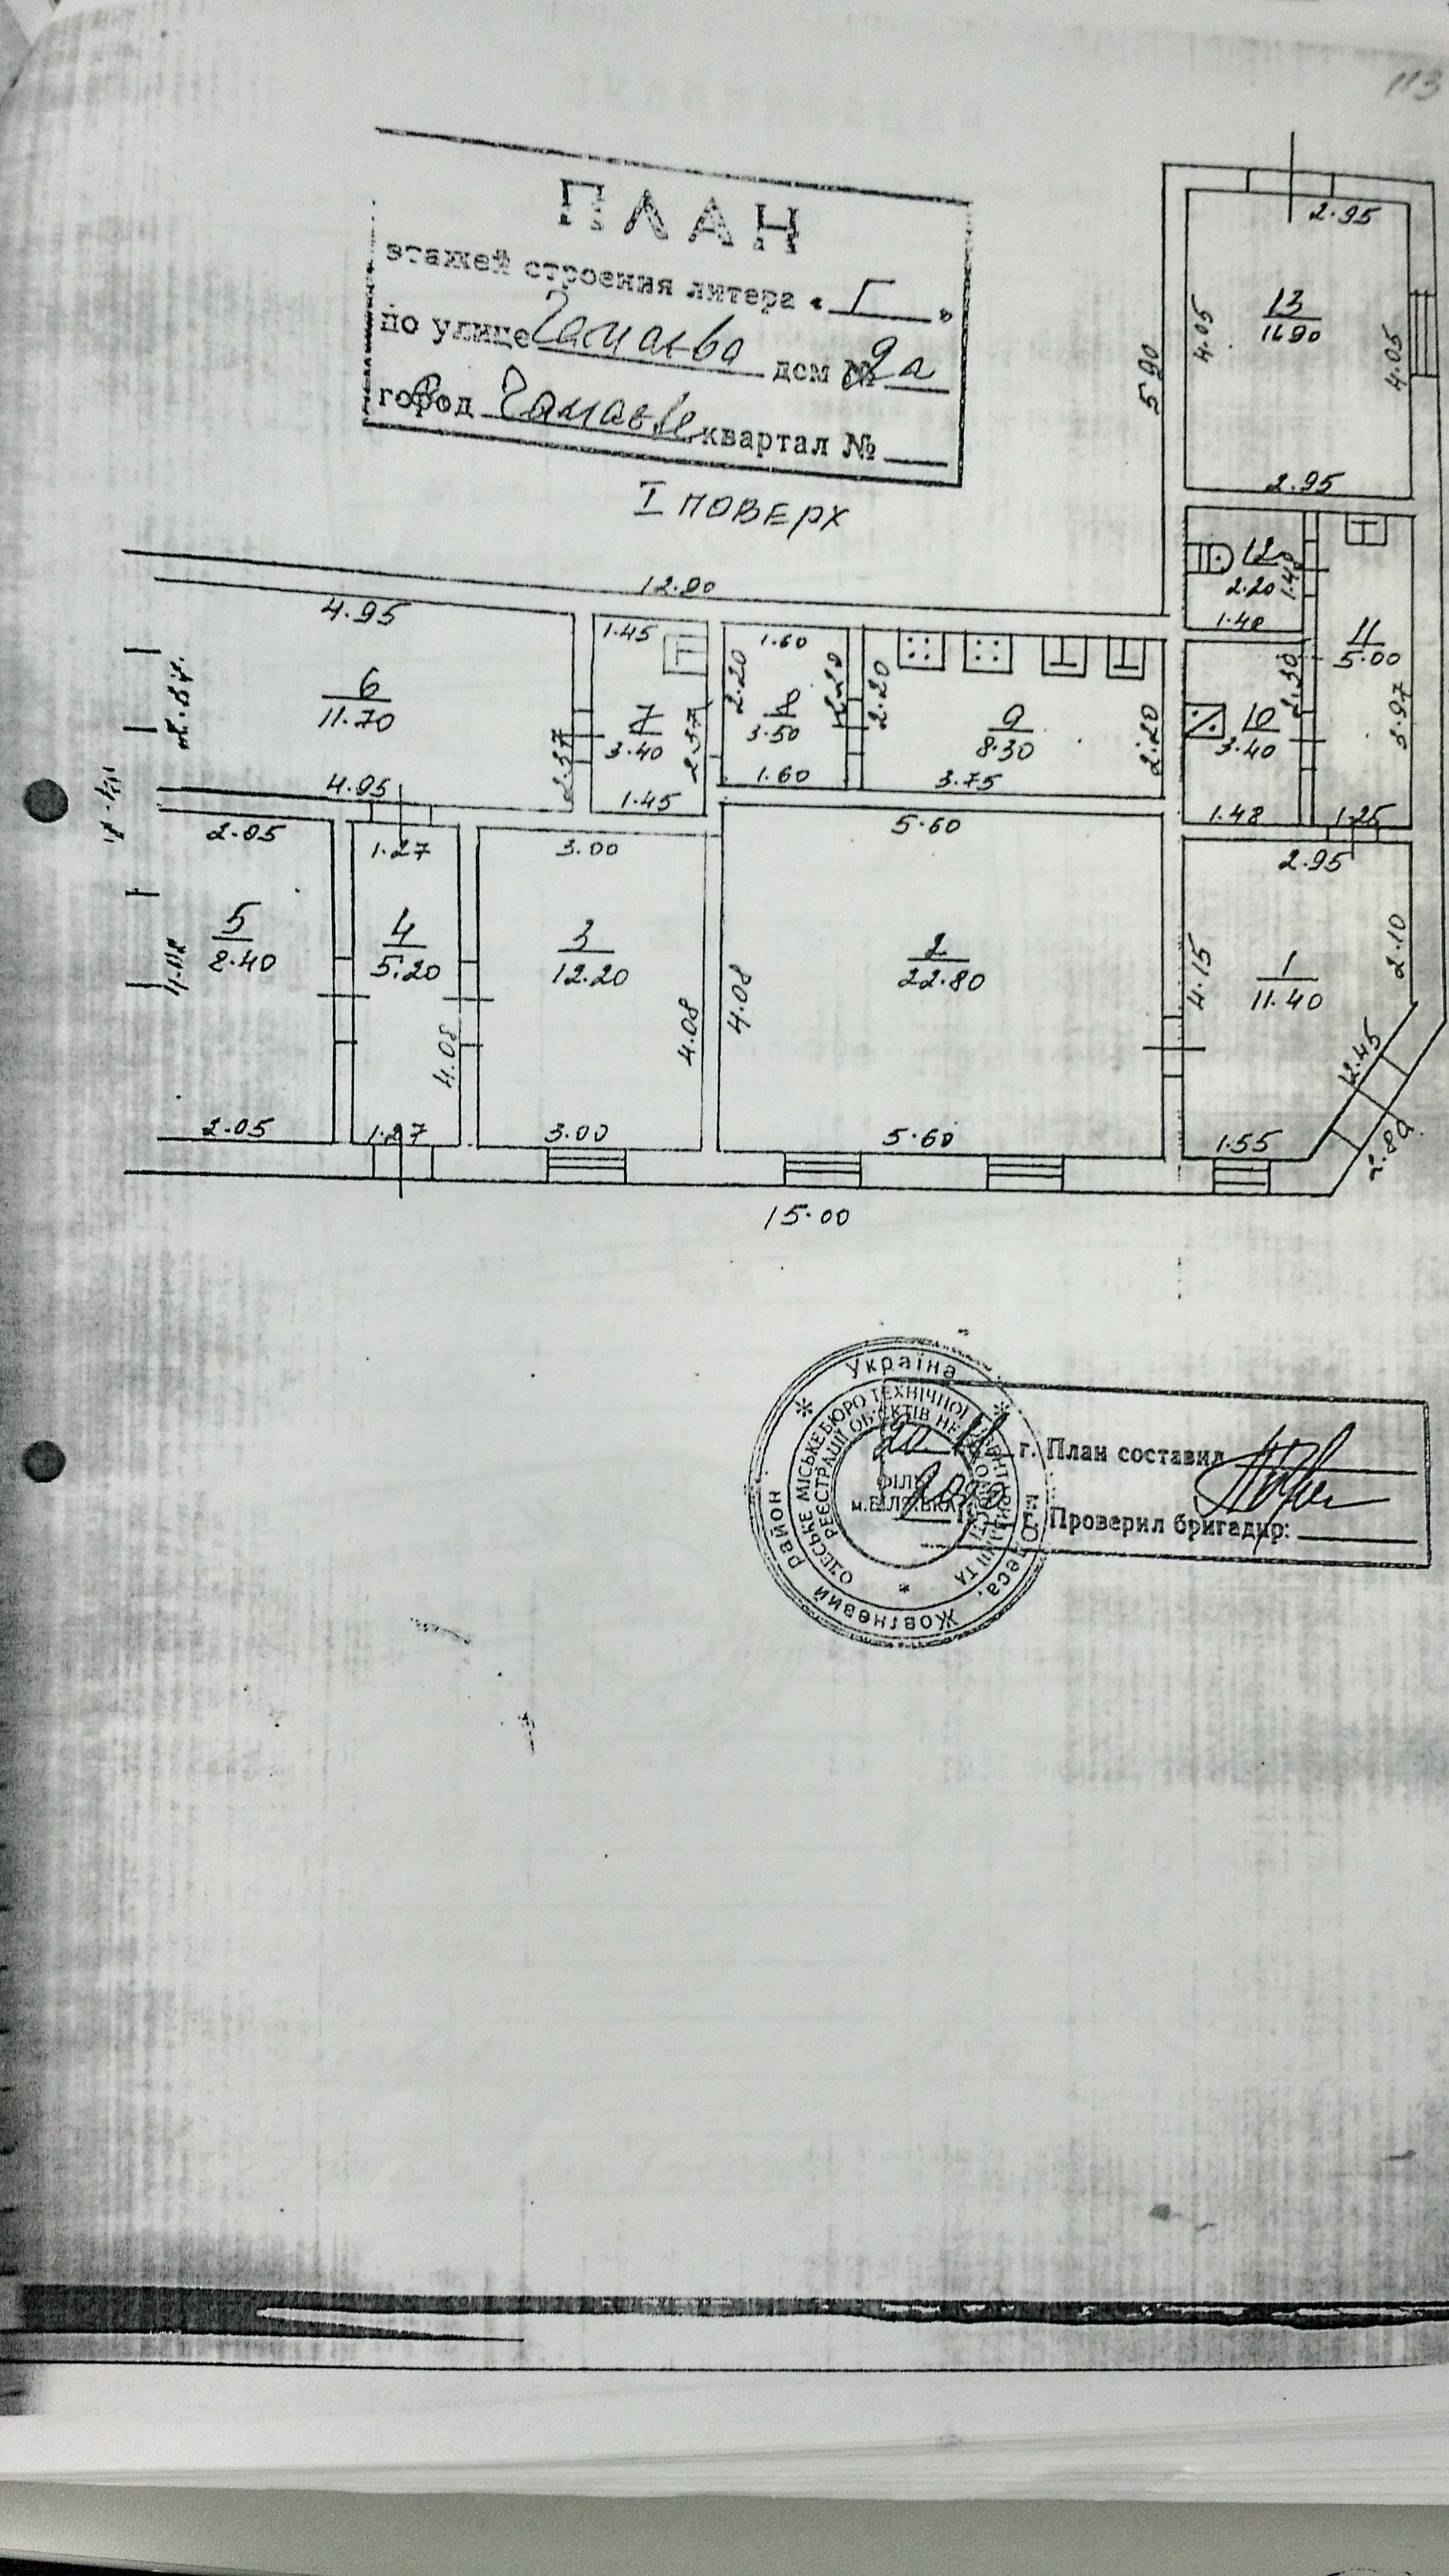 113
ПЛАН
этажей строения литера « Г »
по улице дом № 9а
город квартал №
I ПОВЕРХ
2.95
13
11.90
4.05
4.05
5.90
2.95
12
2.20
1.48
1.48
11
5.00
3.97
12.90
4.95
6
11.70
4.95
2.37
1.45
7
3.40
2.37
1.45
1.60
2.20
8
3.50
2.20
1.60
2.20
9
8.30
2.20
3.75
10
3.40
2.30
1.48
1.25
2.05
5
8.40
2.05
1.27
4
5.20
4.08
1.27
3.00
3
12.20
4.08
3.00
5.60
2
22.80
4.08
5.60
2.95
1
11.40
4.15
2.10
2.45
2.80
1.55
15.00
Україна
м. Одеса, Жовтневий район
ОДЕСЬКЕ МІСЬКЕ БЮРО ТЕХНІЧНОЇ ІНВЕНТАРИЗАЦІЇ ТА
РЕЄСТРАЦІЇ ОБ'ЄКТІВ НЕРУХОМОСТІ
м. БІЛЯЇВКА
г. План составил
г. Проверил бригадир: